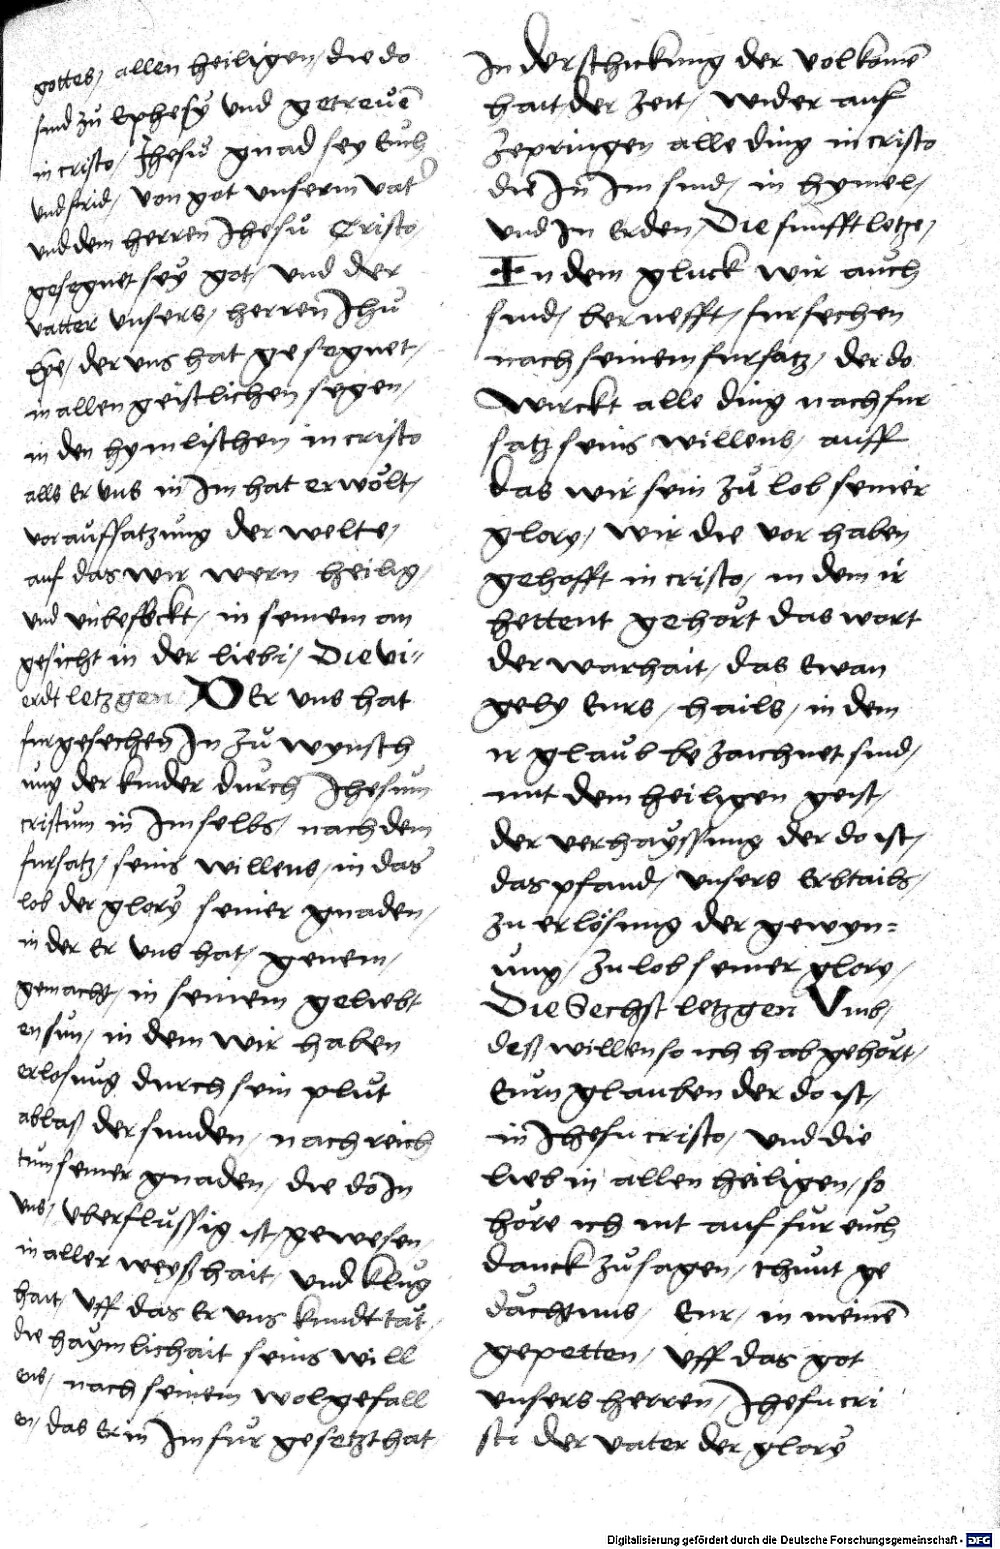 gottes, allen heiligen, die do
sind zů Ephesÿ Vnd getreuē
in cristo, Jhesů gnad seÿ Euch
vnd frid, von got vnserm vat
vnd dem herren Jhesů Cristo,
gesegnet seÿ got, vnd der
vatter vnsers, herren Jhů
der vns hat gesegnet,
in allen geistlichen segen,
in den hymlischen in cristo
alls Er vns in Im hat erwölt,
vor auffsatzung der welte,
auf das wir wern heilig,
vnd vnbefleckt, in seinem an
gesicht in der liebi, Die vi=
erdt letzgen DEr vns hat
furgesechen In zů wynsch
ung der kinder durch Jhesum
cristum in Im selbs, nach dem
fursatz, seins willens, in das
lob der glorÿ seiner gnaden,
in der Er vns hat, genem,
gemacht, in seinem geliebt
en sun, in dem wir haben
erlosung durch sein plůt
ablaß der sunden, nach reich
tum seiner gnaden, die do In
vns, vberflussig ist, gewesen,
in aller weyßhait, vnd klug
hait, Vff das Er vns kundt tat,
die haymlichait seins will
ens, nach seinem wolgefall
en, das Er in Im fůr gesetzt hat
In der schickung der volkomē
hait, der Zeit, wider auf
Zepringen alle ding in cristo
die In Im sind, in hymel,
vnd In Erden, Die funfft letze,
In dem gluck wir auch
sind, beruefft, fursechen
nach seinem fursatz, der do
Wirckt alle ding nach fur
satz seins willens, auff
das wir sein zů lob seiner
glory, wir die vor haben
gehofft in cristo, in dem ir
hettent gehört das wort
der warhait, das Ewan
gely Eurs, hails, in dem
ir glaub bezaichnet sind,
mit dem heiligen geist,
der verhayssung der do ist,
das pfand, vnsers Erbtails,
zu erlösung der gewyn=
ung, zu lob seiner glory,
Die Sechst letzgen Vmb,
deß willen so ich hab gehört,
Eurn glauben der do ist,
in Jhesu cristo, vnd die
lieb in allen heiligen, so
höre ich nit auf fůr euch
danck zů sagen, thůnt ge
dachtnus, Eur, in meinē
gepetten, Vff das got
vnsers herren, Jhesu cri
sti der vater der glorÿ
Digitalisierung gefördert durch die Deutsche Forschungsgemeinschaft - DFG